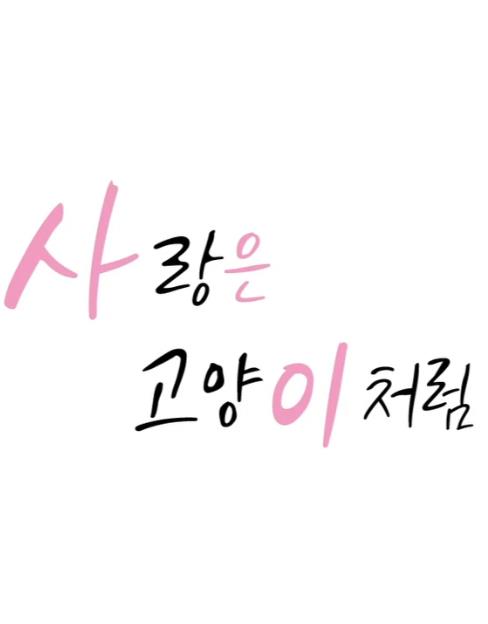 사랑은
고양이처럼